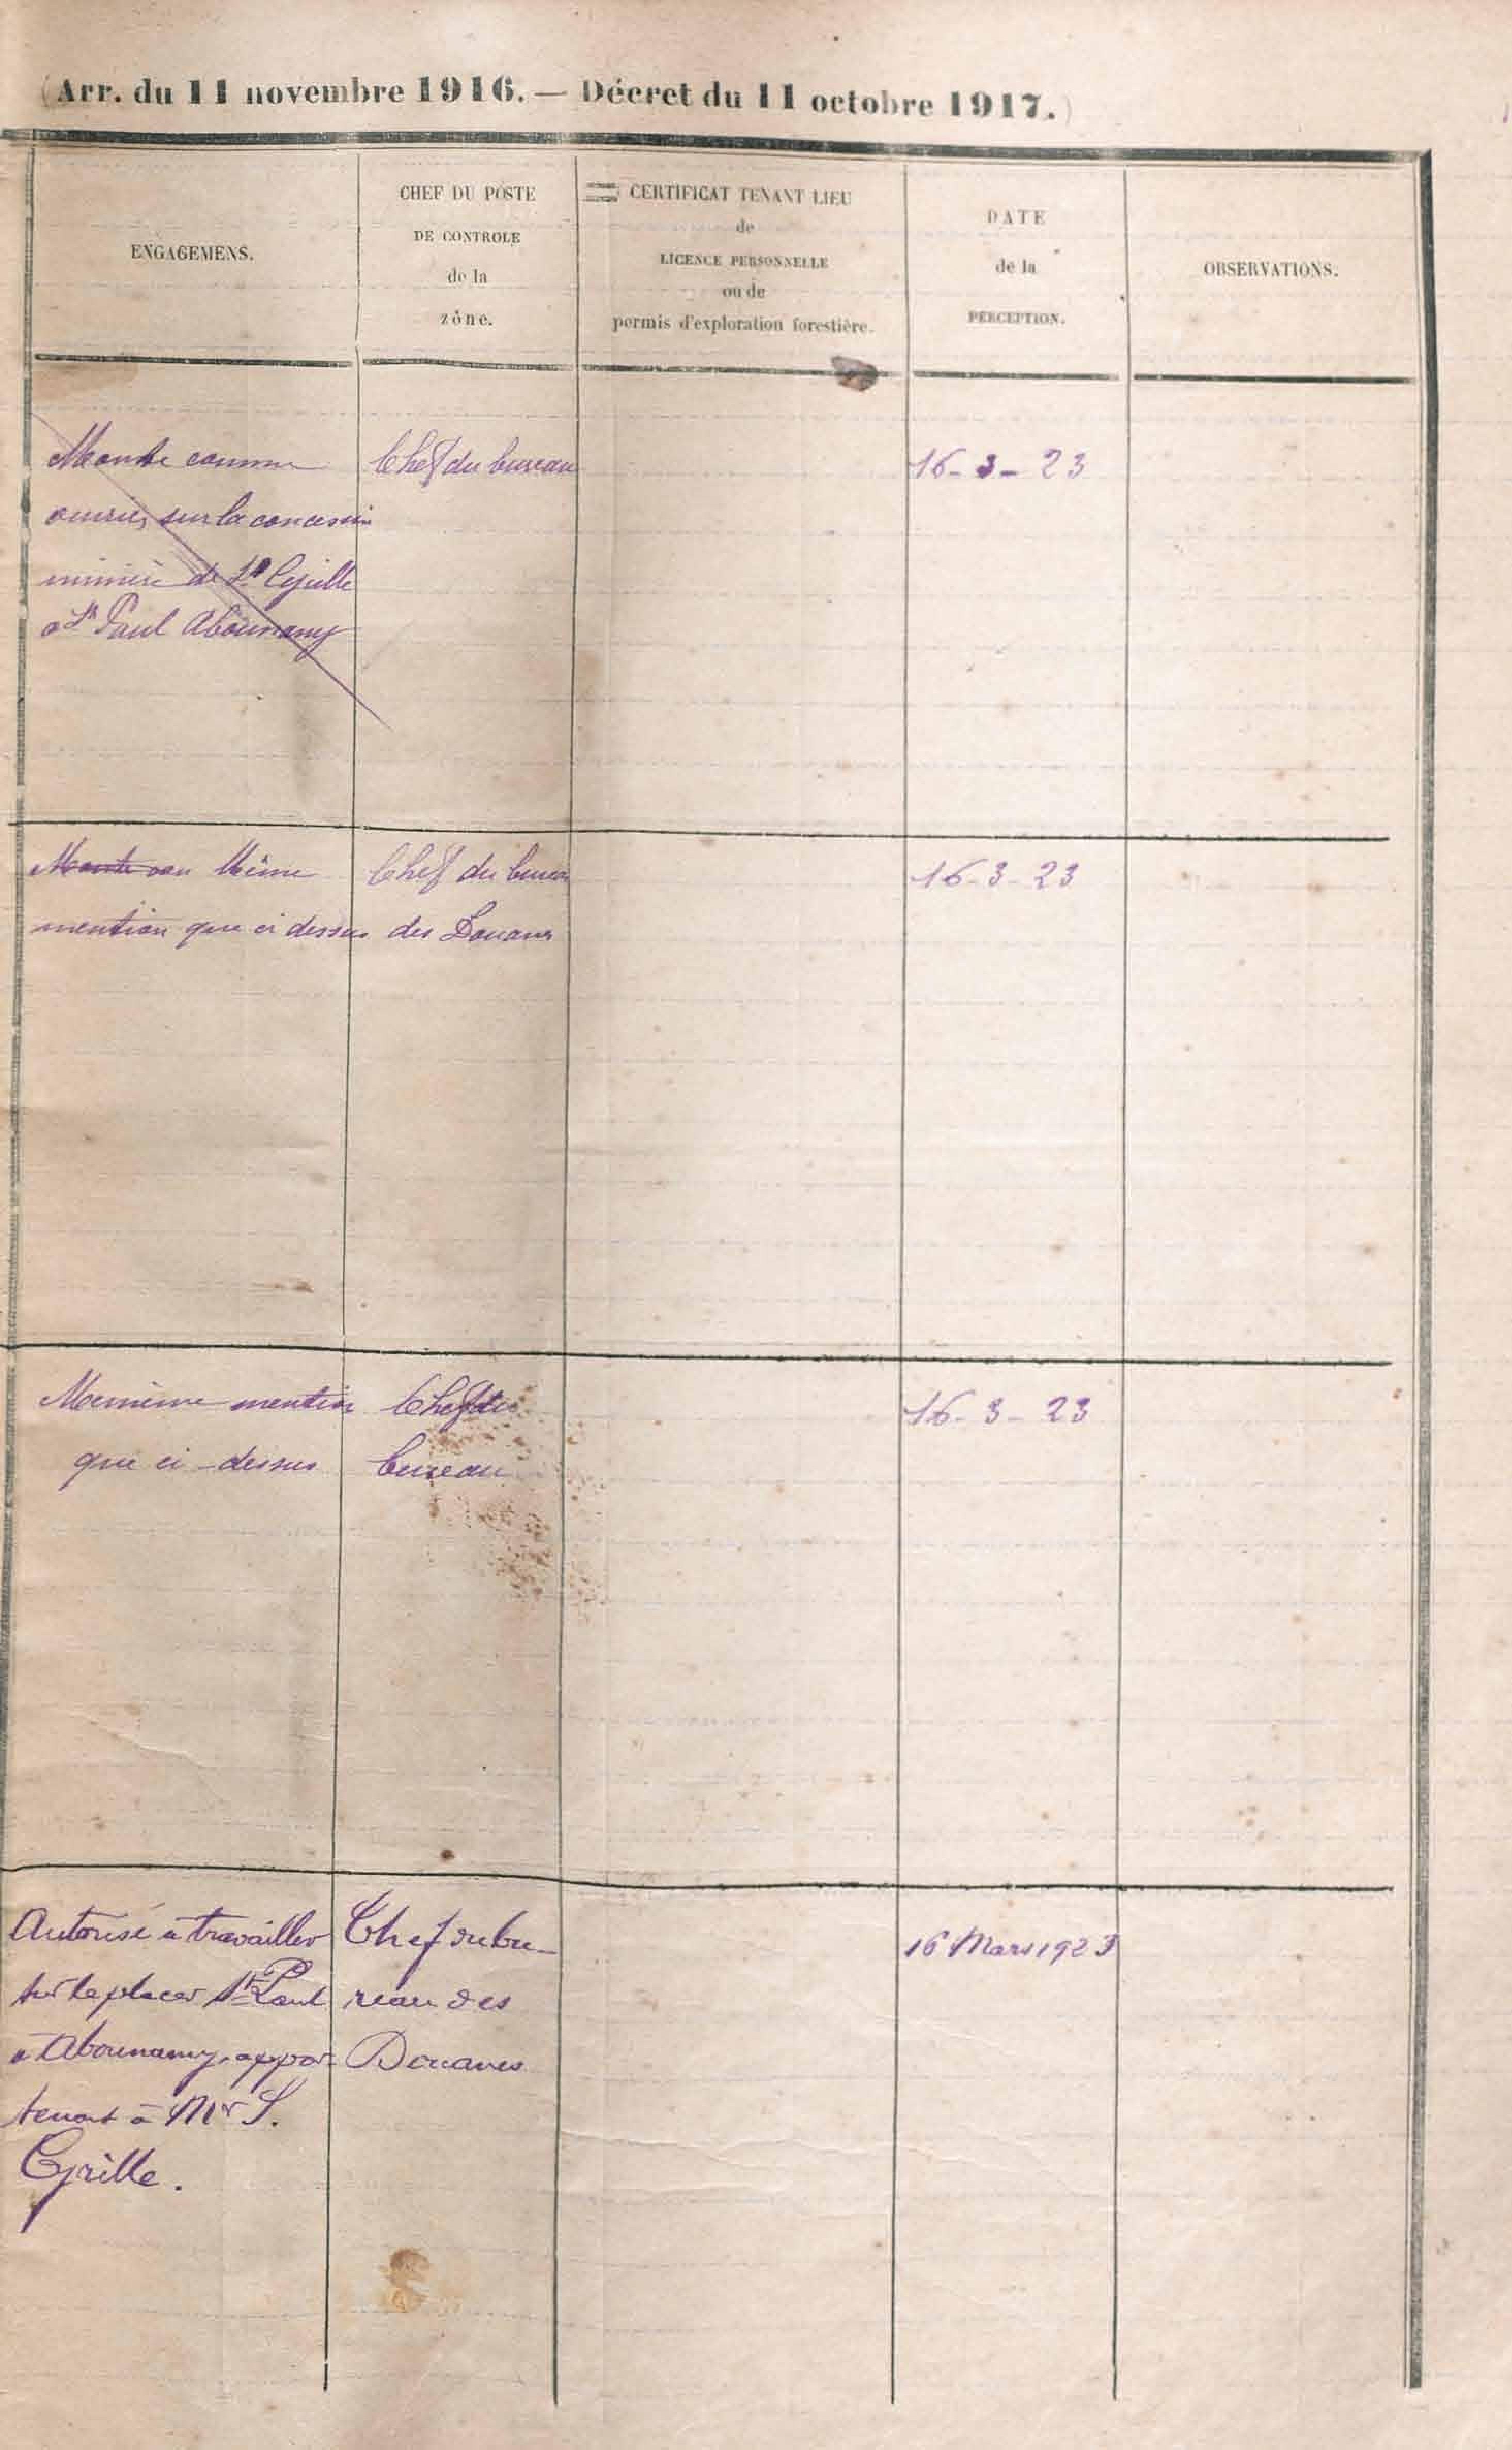 (Arr. du 11 novembre 1916. — Décret du 11 octobre 1917.)
ENGAGEMENS.
CHEF DU POSTE
DE CONTROLE
de la
zône.
CERTIFICAT TENANT LIEU
de
LICENCE PERSONNELLE
ou de
permis d'exploration forestière.
DATE
de la
PERCEPTION.
OBSERVATIONS.
Monte comme
ouvrier sur la concession
minière de St Cyrille
a St Paul Abounamy
Chef du bureau
16-3-23
Monte Même
mention que ci dessus
Chef du bureau
des Douanes
16-3-23
mention
que ci-dessus
Chef du
bureau
16-3-23
Autorisé à travailler
sur le placer St Paul
à Abounamy, appar-
tenant à Mr S.
Cyrille.
Chef du bu-
reau des
Douanes
16 Mars 1923